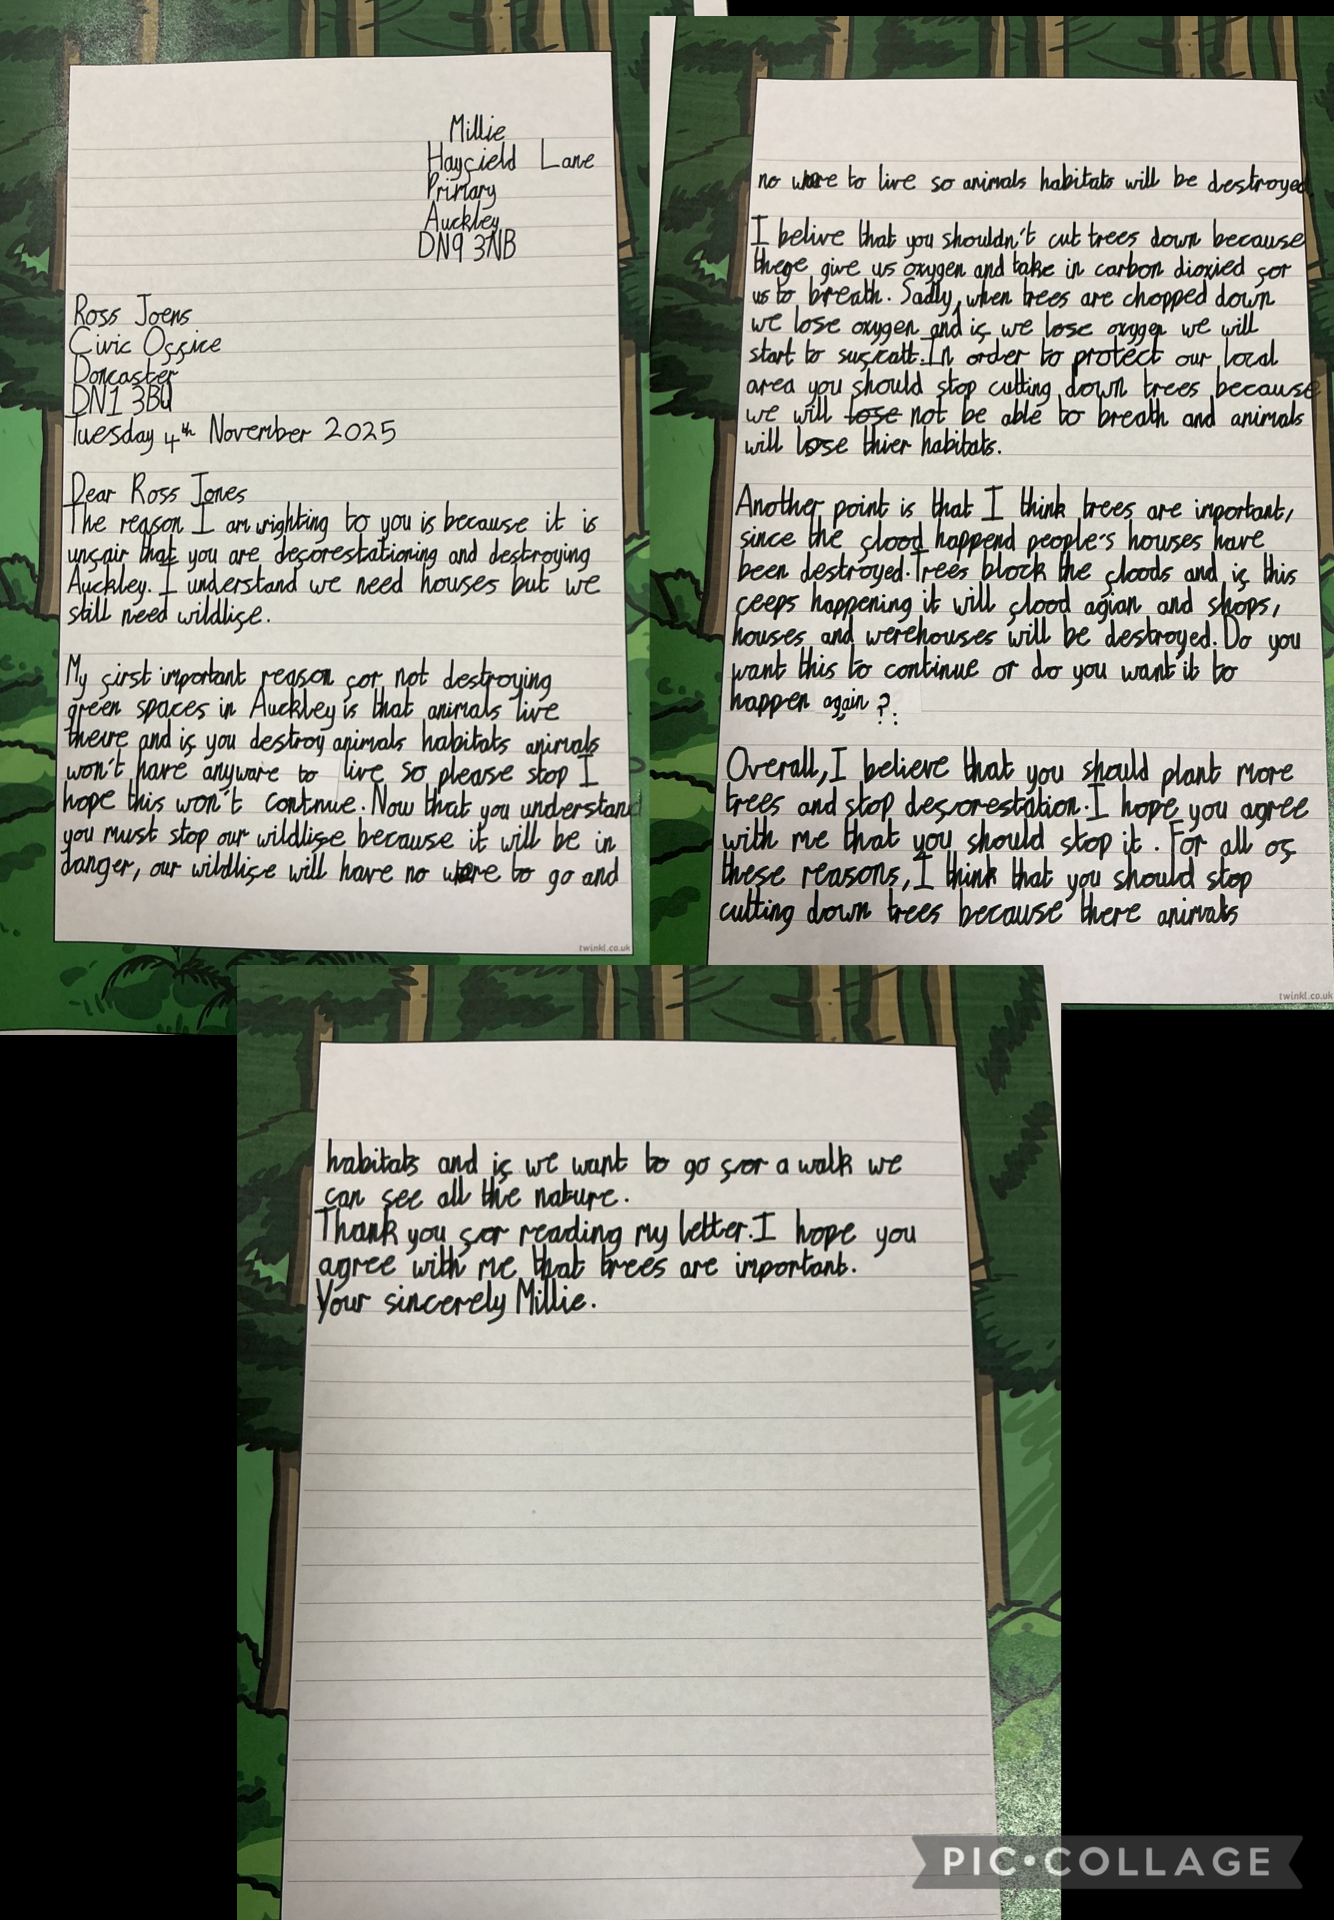 Millie
Hayfield Lane
Primary
Auckley
DN9 3NB
Ross Joens
Civic Office
Doncaster
DN1 3BU
Tuesday 4th November 2025
Dear Ross Jones
The reason I am wrighting to you is because it is
unfair that you are deforestationing and destroying
Auckley. I understand we need houses but we
still need wildlife.
My first important reason for not destroying
green spaces in Auckley is that animals live
there and if you destroy animals habitats animals
won't have anyware to live so please stop I
hope this won't contnue. Now that you understand
you must stop our wildlife because it will be in
danger, our wildlife will have no where to go and
twinkl.co.uk
no where to live so animals habitats will be destroyed.
I belive that you shouldn't cut trees down because
these give us oxygen and take in carbon dioxied for
us to breath. Sadly, when trees are chopped down
we lose oxygen and if we lose oxygen we will
start to suffcatt. In order to protect our local
area you should stop cutting down trees because
we will lose not be able to breath and animals
will lose thier habitats.
Another point is that I think trees are important,
since the flood happend people's houses have
been destroyed. Trees block the floods and if this
ceeps happening it will flood agian and shops,
houses and werehouses will be destroyed. Do you
want this to continue or do you want it to
happen again?.
Overall, I believe that you should plant more
trees and stop desforestation. I hope you agree
with me that you should stop it. For all of
these reasons, I think that you should stop
cutting down trees because there animals
twinkl.co.uk
habitats and if we want to go for a walk we
can see all the nature.
Thank you for reading my letter. I hope you
agree with me that trees are important.
Your sincerely Millie.
PIC•COLLAGE